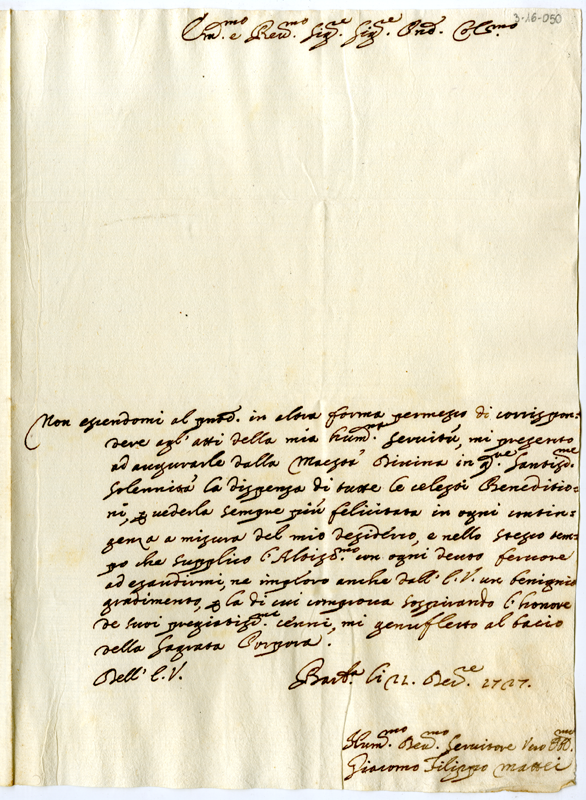 3-16-050
Em.mo e Reu.mo Sig.re Sig.re Pnd. Col.mo
Non essendomi al pnte. in altra forma permesso di corrispon-
dere agl'atti della mia hum.ma seruitù, mi presento
ad augurarle dalla Maestà Diuina in q.ste Santiss.me
Solennità la dispenza di tutte le celesti Beneditio-
ni, p uederla sempre più felicitata in ogni contin-
genza a misura del mio desiderio, e nello stesso tem-
po che supplico l'Altiss.mo con ogni deuto feruore
ad esaudirmi, ne imploro anche dall'E.V. un benigno
gradimento, p la di cui comproua sospirando l'honore
de suoi pregiatiss.mi cenni, mi genufletto al bacio
della Sagrata Porpora.
Dell'E.V.
li 22. Dec.re 1727.
Hum.mo Deu.mo Seruitore Vero
Giacomo Filippo Mattei